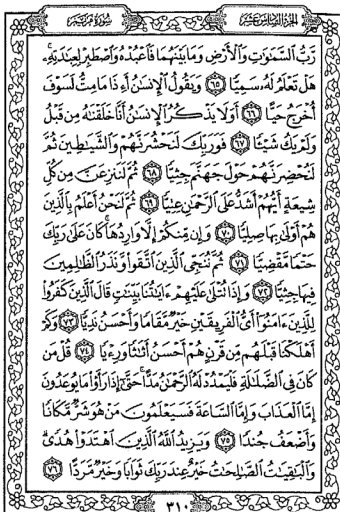 الجزء السادس عشر سورة مريم
رَّبُّ السَّمَٰوَٰتِ وَالْأَرْضِ وَمَا بَيْنَهُمَا فَاعْبُدْهُ وَاصْطَبِرْ لِعِبَٰدَتِهِۦ ۚ
هَلْ تَعْلَمُ لَهُۥ سَمِيًّا ٦٥ وَيَقُولُ الْإِنسَٰنُ أَءِذَا مَا مِتُّ لَسَوْفَ
أُخْرَجُ حَيًّا ٦٦ أَوَلَا يَذْكُرُ الْإِنسَٰنُ أَنَّا خَلَقْنَٰهُ مِن قَبْلُ
وَلَمْ يَكُ شَيْـًٔا ٦٧ فَوَرَبِّكَ لَنَحْشُرَنَّهُمْ وَالشَّيَٰطِينَ ثُمَّ
لَنُحْضِرَنَّهُمْ حَوْلَ جَهَنَّمَ جِثِيًّا ٦٨ ثُمَّ لَنَنزِعَنَّ مِن كُلِّ
شِيعَةٍ أَيُّهُمْ أَشَدُّ عَلَى الرَّحْمَٰنِ عِتِيًّا ٦٩ ثُمَّ لَنَحْنُ أَعْلَمُ بِالَّذِينَ
هُمْ أَوْلَىٰ بِهَا صِلِيًّا ٧٠ وَإِن مِّنكُمْ إِلَّا وَارِدُهَا ۚ كَانَ عَلَىٰ رَبِّكَ
حَتْمًا مَّقْضِيًّا ٧١ ثُمَّ نُنَجِّى الَّذِينَ اتَّقَوا وَّنَذَرُ الظَّٰلِمِينَ
فِيهَا جِثِيًّا ٧٢ وَإِذَا تُتْلَىٰ عَلَيْهِمْ ءَايَٰتُنَا بَيِّنَٰتٍ قَالَ الَّذِينَ كَفَرُوا
لِلَّذِينَ ءَامَنُوا أَىُّ الْفَرِيقَيْنِ خَيْرٌ مَّقَامًا وَأَحْسَنُ نَدِيًّا ٧٣ وَكَمْ
أَهْلَكْنَا قَبْلَهُم مِّن قَرْنٍ هُمْ أَحْسَنُ أَثَٰثًا وَرِءْيًا ٧٤ قُلْ مَن
كَانَ فِى الضَّلَٰلَةِ فَلْيَمْدُدْ لَهُ الرَّحْمَٰنُ مَدًّا ۚ حَتَّىٰ إِذَا رَأَوْا مَا يُوعَدُونَ
إِمَّا الْعَذَابَ وَإِمَّا السَّاعَةَ فَسَيَعْلَمُونَ مَنْ هُوَ شَرٌّ مَّكَانًا
وَأَضْعَفُ جُندًا ٧٥ وَيَزِيدُ اللَّهُ الَّذِينَ اهْتَدَوْا هُدًى ۗ
وَالْبَٰقِيَٰتُ الصَّٰلِحَٰتُ خَيْرٌ عِندَ رَبِّكَ ثَوَابًا وَخَيْرٌ مَّرَدًّا ٧٦
٣١٠